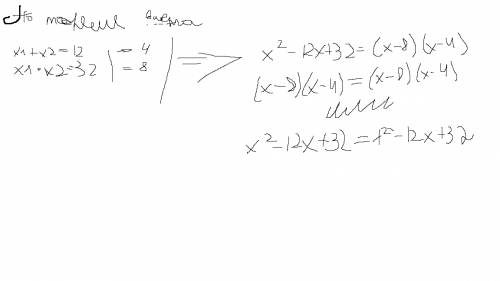 По теореме Виета
x1+x2=12 = 4
x1·x2=32 = 8
=> x²-12x+32=(x-8)(x-4)
(x-8)(x-4)=(x-8)(x-4)
x²-12x+32=x²-12x+32